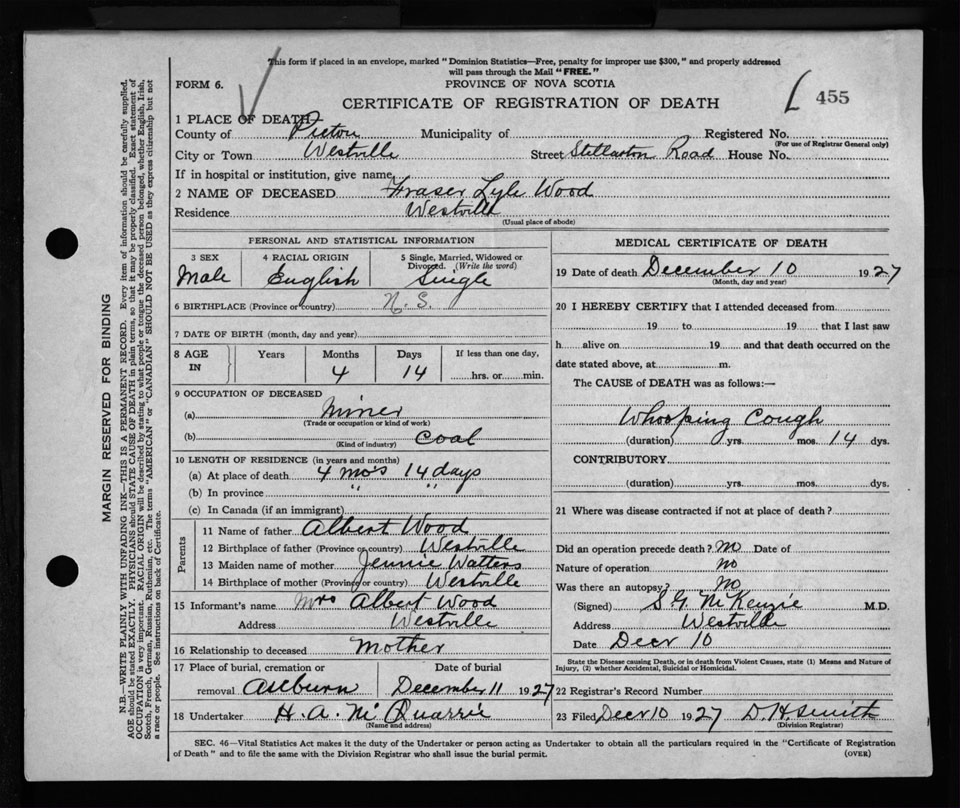 This form if placed in an envelope, marked "Dominion Statistics—Free, penalty for improper use $300," and properly addressed
will pass through the Mail "FREE."
FORM 6.
PROVINCE OF NOVA SCOTIA
CERTIFICATE OF REGISTRATION OF DEATH
455
1 PLACE OF DEATH
County of Pictou Municipality of Registered No.
(For use of Registrar General only)
City or Town Westville Street Stellarton Road House No.
If in hospital or institution, give name
2 NAME OF DECEASED Fraser Lyle Wood
Residence Westville
(Usual place of abode)
PERSONAL AND STATISTICAL INFORMATION
3 SEX 4 RACIAL ORIGIN 5 Single, Married, Widowed or
Divorced. (Write the word)
Male English Single
6 BIRTHPLACE (Province or country) N. S.
7 DATE OF BIRTH (month, day and year)
8 AGE IN Years Months Days If less than one day,
4 14 hrs. or min.
9 OCCUPATION OF DECEASED
(a) Miner
(Trade or occupation or kind of work)
(b) Coal
(Kind of industry)
10 LENGTH OF RESIDENCE (in years and months)
(a) At place of death 4 mo's 14 days
(b) In province " "
(c) In Canada (if an immigrant)
Parents
11 Name of father Albert Wood
12 Birthplace of father (Province or country) Westville
13 Maiden name of mother Jennie Watters
14 Birthplace of mother (Province or country) Westville
15 Informant's name Mrs Albert Wood
Address Westville
16 Relationship to deceased Mother
17 Place of burial, cremation or Date of burial
removal December 11 1927
18 Undertaker H. A. McQuarrie
(Name and address)
MEDICAL CERTIFICATE OF DEATH
19 Date of death December 10 1927
(Month, day and year)
20 I HEREBY CERTIFY that I attended deceased from
19 to 19 that I last saw
h alive on 19 and that death occurred on the
date stated above, at m.
The CAUSE of DEATH was as follows:—
Whooping Cough
(duration) yrs. mos. 14 dys.
CONTRIBUTORY
(duration) yrs. mos. dys.
21 Where was disease contracted if not at place of death?
Did an operation precede death? No Date of
Nature of operation No
Was there an autopsy? No
(Signed) S G McKenzie M.D.
Address Westville
Date Decr 10
State the Disease causing Death, or in death from Violent Causes, state (1) Means and Nature of
Injury, (2) whether Accidental, Suicidal or Homicidal.
22 Registrar's Record Number
23 Filed Decr 10 1927 D. H. Smith
(Division Registrar)
SEC. 46—Vital Statistics Act makes it the duty of the Undertaker or person acting as Undertaker to obtain all the particulars required in the "Certificate of Registration
of Death" and to file the same with the Division Registrar who shall issue the burial permit. (OVER)
MARGIN RESERVED FOR BINDING
N.B.—WRITE PLAINLY WITH UNFADING INK—THIS IS A PERMANENT RECORD. Every item of information should be carefully supplied.
AGE should be stated EXACTLY. PHYSICIANS should STATE CAUSE OF DEATH in plain terms, so that it may be properly classified. Exact statement of
OCCUPATION is very important. RACIAL ORIGIN will be described by stating to what people or tongue the deceased person belonged, whether English, Irish,
Scotch, French, German, Russian, Ruthenian, etc. The terms "AMERICAN" or "CANADIAN" SHOULD NOT BE USED as they express citizenship but not
a race or people. See instructions on back of Certificate.